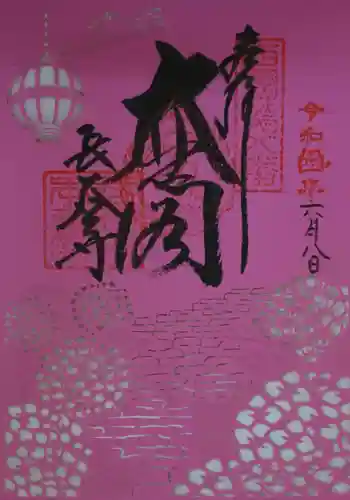 奉拝
令和四年六月八日
大悲閣
長谷寺